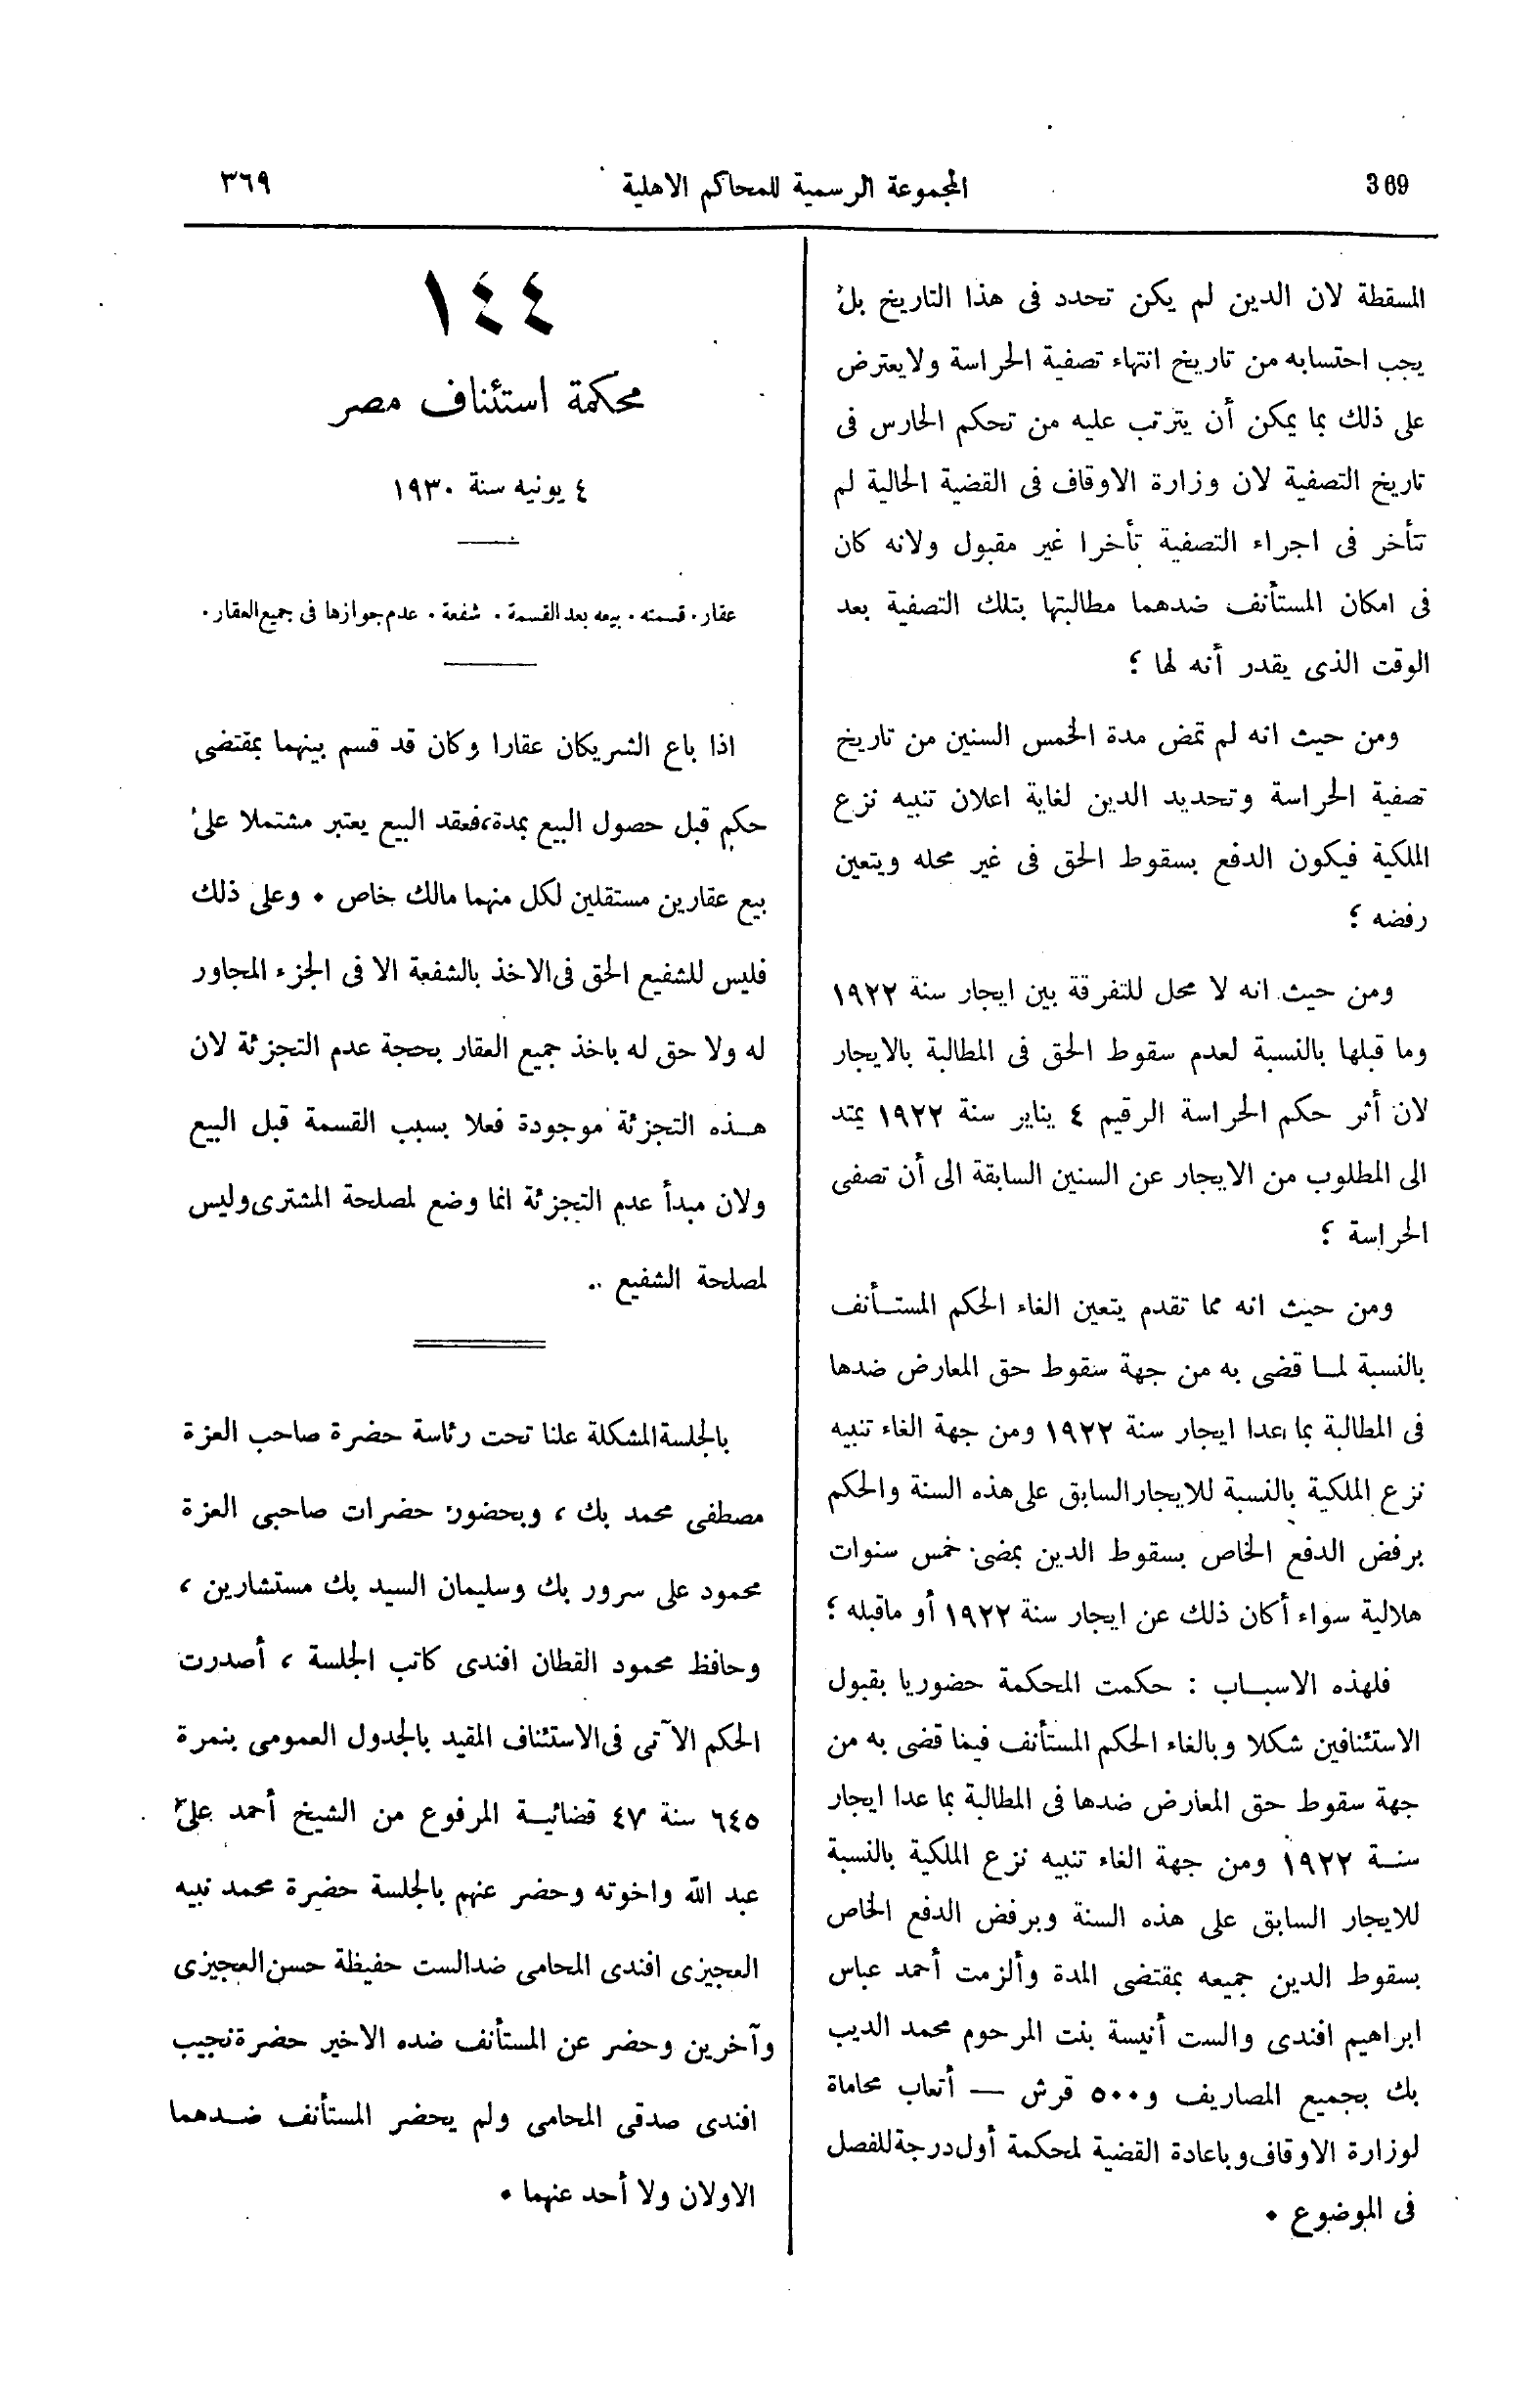 369
المجموعة الرسمية للمحاكم الاهلية
٣٦٩
المسقطة لان الدين لم يكن تحدد فى هذا التاريخ بل
يجب احتسابه من تاريخ انتهاء تصفية الحراسة ولايعترض
على ذلك بما يمكن أن يترتب عليه من تحكم الحارس فى
تاريخ التصفية لان وزارة الاوقاف فى القضية الحالية لم
تتأخر فى اجراء التصفية تأخرا غير مقبول ولانه كان
فى امكان المستأنف ضدهما مطالبتها بتلك التصفية بعد
الوقت الذى يقدر أنه لها ؛
ومن حيث انه لم تمض مدة الخمس السنين من تاريخ
تصفية الحراسة وتحديد الدين لغاية اعلان تنبيه نزع
الملكية فيكون الدفع بسقوط الحق فى غير محله ويتعين
رفضه ؛
ومن حيث انه لا محل للتفرقة بين ايجار سنة ١٩٢٢
وما قبلها بالنسبة لعدم سقوط الحق فى المطالبة بالايجار
لان أثر حكم الحراسة الرقيم ٤ يناير سنة ١٩٢٢ يمتد
الى المطلوب من الايجار عن السنين السابقة الى أن تصفى
الحراسة ؛
ومن حيث انه مما تقدم يتعين الغاء الحكم المستأنف
بالنسبة لما قضى به من جهة سقوط حق المعارض ضدها
فى المطالبة بما عدا ايجار سنة ١٩٢٢ ومن جهة الغاء تنبيه
نزع الملكية بالنسبة للايجار السابق على هذه السنة والحكم
برفض الدفع الخاص بسقوط الدين بمضى خمس سنوات
هلالية سواء أكان ذلك عن ايجار سنة ١٩٢٢ أو ماقبله ؛
فلهذه الاسباب : حكمت المحكمة حضوريا بقبول
الاستئنافين شكلا وبالغاء الحكم المستأنف فيما قضى به من
جهة سقوط حق المعارض ضدها فى المطالبة بما عدا ايجار
سنة ١٩٢٢ ومن جهة الغاء تنبيه نزع الملكية بالنسبة
للايجار السابق على هذه السنة وبرفض الدفع الخاص
بسقوط الدين جميعه بمقتضى المدة وألزمت أحمد عباس
ابراهيم افندى والست أنيسة بنت المرحوم محمد الديب
بك بجميع المصاريف و٥٠٠ قرش — أتعاب محاماة
لوزارة الاوقاف وباعادة القضية لمحكمة أول درجة للفصل
فى الموضوع .
١٤٤
محكمة استئناف مصر
٤ يونيه سنة ١٩٣٠
عقار . قسمته . بيعه بعد القسمة . شفعة . عدم جوازها فى جميع العقار .
اذا باع الشريكان عقارا وكان قد قسم بينهما بمقتضى
حكم قبل حصول البيع بمدة، فعقد البيع يعتبر مشتملا على
بيع عقارين مستقلين لكل منهما مالك خاص . وعلى ذلك
فليس للشفيع الحق فى الاخذ بالشفعة الا فى الجزء المجاور
له ولا حق له باخذ جميع العقار بحجة عدم التجزئة لان
هذه التجزئة موجودة فعلا بسبب القسمة قبل البيع
ولان مبدأ عدم التجزئة انما وضع لمصلحة المشترى وليس
لمصلحة الشفيع .
بالجلسة المشكلة علنا تحت رئاسة حضرة صاحب العزة
مصطفى محمد بك ، وبحضور حضرات صاحبى العزة
محمود على سرور بك وسليمان السيد بك مستشارين ،
وحافظ محمود القطان افندى كاتب الجلسة ، أصدرت
الحكم الآتى فى الاستئناف المقيد بالجدول العمومى بنمرة
٦٤٥ سنة ٤٧ قضائية المرفوع من الشيخ أحمد على
عبد الله واخوته وحضر عنهم بالجلسة حضرة محمد نبيه
العجيزى افندى المحامى ضد الست حفيظة حسن العجيزى
وآخرين وحضر عن المستأنف ضده الاخير حضرة نجيب
افندى صدقى المحامى ولم يحضر المستأنف ضدهما
الاولان ولا أحد عنهما .